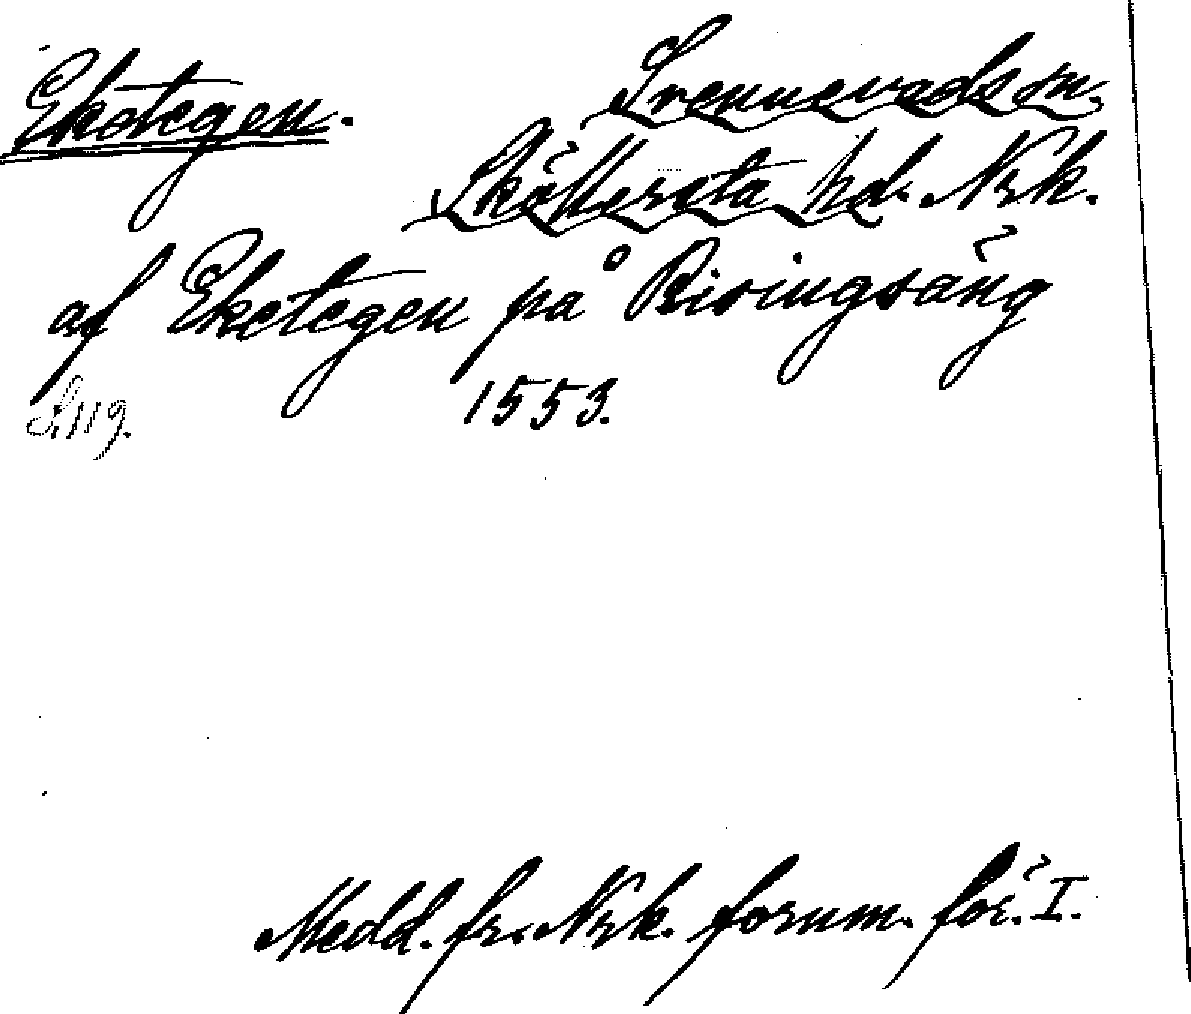 Eketegen. Svennevads sn.
Sköllersta hd. Nrk.
af Eketegen på Risingsäng
1553.
S. 119.
Medd. fr. Nrk. fornm. för. I.